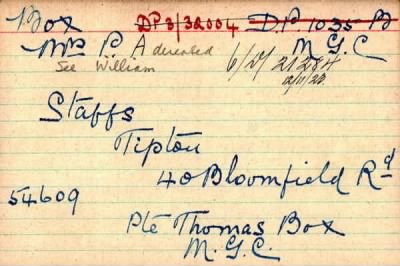 Box DP3/32004 D.P. 1035 B
Mrs P. A deserted M.G.C
See William 6/D/21284
12/11/23.
Staffs
Tipton
40 Bloomfield Rd
54609
Pte Thomas Box
M.G.C.